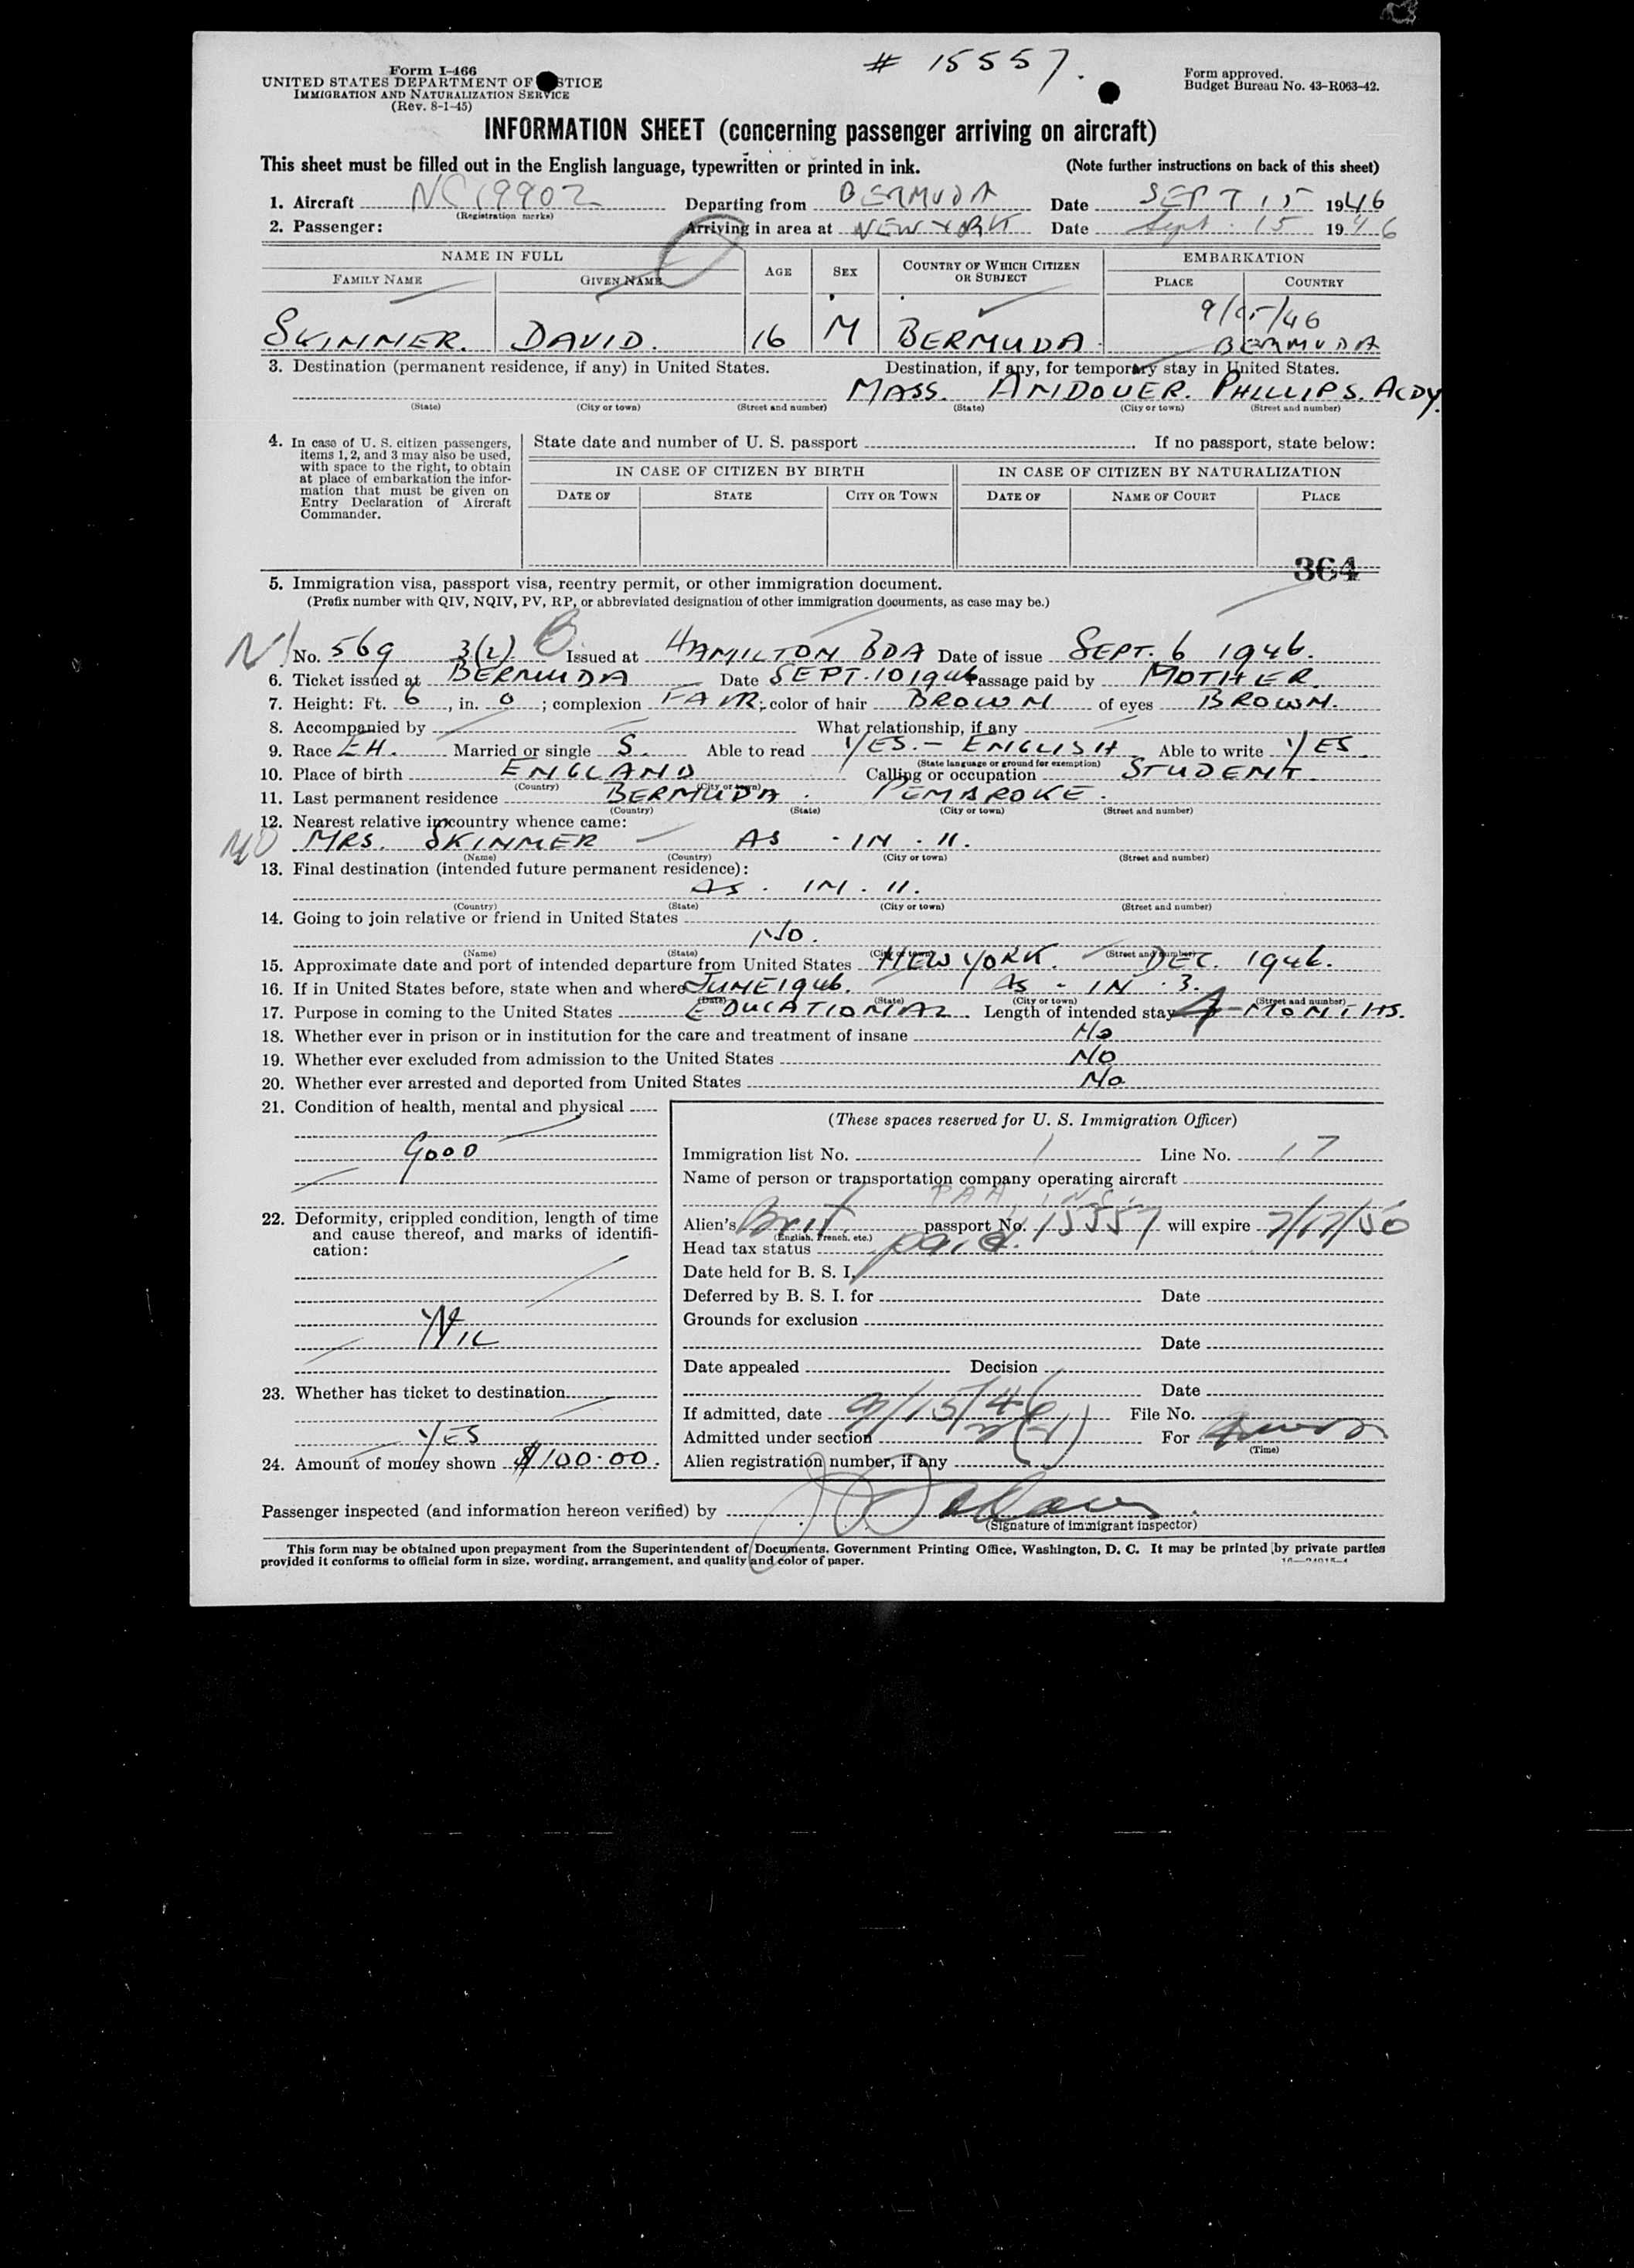 # 15557.
Form I-466
UNITED STATES DEPARTMENT OF STICE
IMMIGRATION AND NATURALIZATION SERVICE
(Rev. 8-1-45)
Form approved.
Budget Bureau No. 43-R063-42.
INFORMATION SHEET (concerning passenger arriving on aircraft)
This sheet must be filled out in the English language, typewritten or printed in ink. (Note further instructions on back of this sheet)
1. Aircraft NC19902 Departing from BERMUDA Date SEPT 15 1946
(Registration marks)
2. Passenger: Arriving in area at NEW YORK Date Sept. 15 1946
NAME IN FULL AGE SEX COUNTRY OF WHICH CITIZEN OR SUBJECT EMBARKATION
FAMILY NAME GIVEN NAME PLACE COUNTRY
9/15/46
SKINNER. DAVID. 16 M BERMUDA BERMUDA
3. Destination (permanent residence, if any) in United States. Destination, if any, for temporary stay in United States.
MASS. ANDOVER. PHILLIPS. ACDY.
(State) (City or town) (Street and number) (State) (City or town) (Street and number)
4. In case of U. S. citizen passengers, items 1, 2, and 3 may also be used, with space to the right, to obtain at place of embarkation the information that must be given on Entry Declaration of Aircraft Commander.
State date and number of U. S. passport If no passport, state below:
IN CASE OF CITIZEN BY BIRTH IN CASE OF CITIZEN BY NATURALIZATION
DATE OF STATE CITY OR TOWN DATE OF NAME OF COURT PLACE
364
5. Immigration visa, passport visa, reentry permit, or other immigration document.
(Prefix number with QIV, NQIV, PV, RP, or abbreviated designation of other immigration documents, as case may be.)
No. 569 3(2) Issued at HAMILTON BDA Date of issue SEPT. 6 1946.
6. Ticket issued at BERMUDA Date SEPT. 10 1946 Passage paid by MOTHER.
7. Height: Ft. 6, in. 0; complexion FAIR; color of hair BROWN of eyes BROWN.
8. Accompanied by What relationship, if any
9. Race EH. Married or single S. Able to read YES. - ENGLISH Able to write YES
(State language or ground for exemption)
10. Place of birth ENGLAND Calling or occupation STUDENT
(Country) (City or town)
11. Last permanent residence BERMUDA. PEMBROKE.
(Country) (State) (City or town) (Street and number)
12. Nearest relative in country whence came:
MRS. SKINNER AS - IN . 11.
(Name) (Country) (City or town) (Street and number)
13. Final destination (intended future permanent residence):
AS . IN . 11.
(Country) (State) (City or town) (Street and number)
14. Going to join relative or friend in United States
NO.
(Name) (State) (City or town) (Street and number)
15. Approximate date and port of intended departure from United States NEW YORK. DEC. 1946.
16. If in United States before, state when and where JUNE 1946. AS - IN . 3.
(Date) (State) (City or town) (Street and number)
17. Purpose in coming to the United States EDUCATIONAL. Length of intended stay 4-MONTHS.
18. Whether ever in prison or in institution for the care and treatment of insane No
19. Whether ever excluded from admission to the United States NO
20. Whether ever arrested and deported from United States No
21. Condition of health, mental and physical
GOOD
22. Deformity, crippled condition, length of time and cause thereof, and marks of identification:
NIL
23. Whether has ticket to destination
YES
24. Amount of money shown $100.00.
(These spaces reserved for U. S. Immigration Officer)
Immigration list No. 1 Line No. 17
Name of person or transportation company operating aircraft
PAA, INC.
Alien's Brit. passport No. 15557 will expire 7/17/50
(English, French, etc.)
Head tax status paid.
Date held for B. S. I.
Deferred by B. S. I. for Date
Grounds for exclusion
Date
Date appealed Decision
Date
If admitted, date 9/15/46 File No.
Admitted under section 3(2) For
(Time)
Alien registration number, if any
Passenger inspected (and information hereon verified) by
(Signature of immigrant inspector)
This form may be obtained upon prepayment from the Superintendent of Documents, Government Printing Office, Washington, D. C. It may be printed by private parties
provided it conforms to official form in size, wording, arrangement, and quality and color of paper.